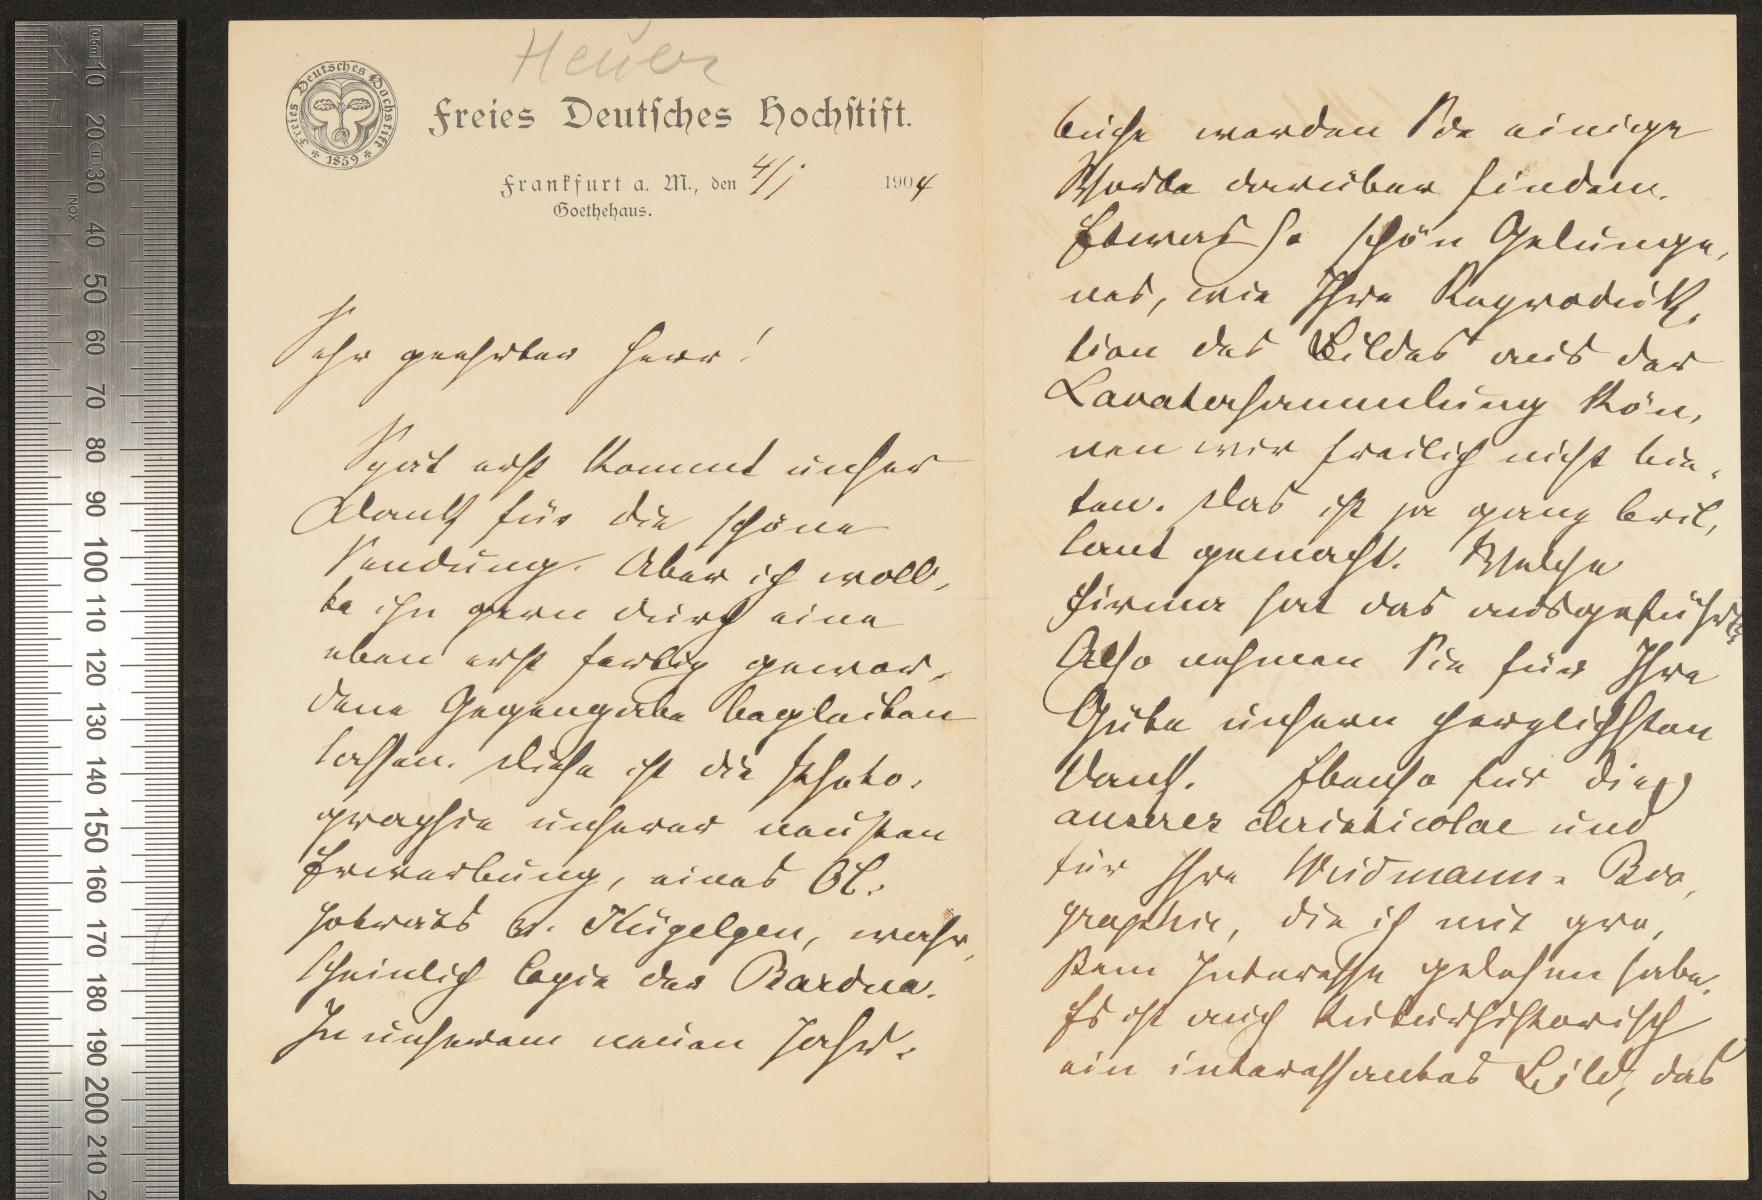 Heuer
Freies Deutsches Hochstift
1859
Freies Deutsches Hochstift.
Frankfurt a. M., den 4/1 1904
Goethehaus.
Sehr geehrter Herr!
Spät erst kommt unser
Dank für die schöne
Sendung. Aber ich woll-
te ihn gern durch eine
eben erst fertig gewor-
dene Gegengabe begleiten
lassen. Diese ist die Photo-
graphie unserer neusten
Erwerbung, eines Öl-
porträts v. Kügelgen, wahr-
scheinlich Copie der Bardua.
In unserem neuen Jahr-
buche werden Sie einige
Worte darüber finden.
Etwas so schön Gelunge-
nes, wie Ihre Reproduk-
tion des Bildes aus der
Lavatersammlung kön-
nen wir freilich nicht bie-
ten. Das ist ja ganz bril-
lant gemacht. Welche
Firma hat das ausgeführt?
Also nehmen Sie für Ihre
Güte unsern herzlichsten
Dank. Ebenso für die
anseres christicolae und
für Ihre Widmann-Bio-
graphie, die ich mit gro-
ßem Interesse gelesen habe.
Es ist auch kulturhistorisch
ein interessantes Bild, das